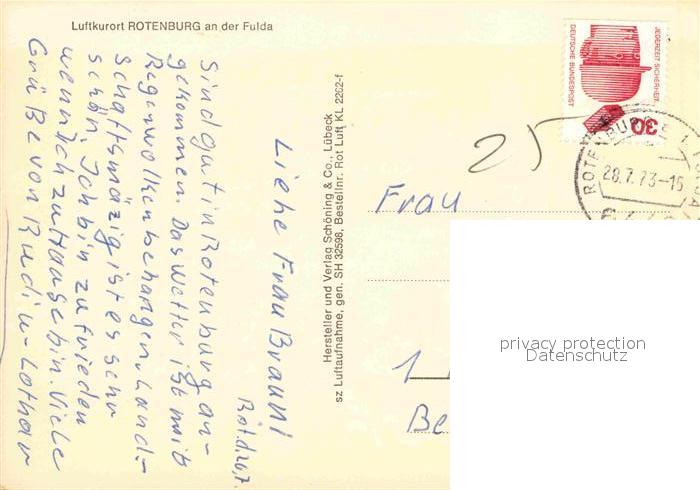 Luftkurort ROTENBURG an der Fulda
Rot. d. 26.7.
Liebe Frau Braun!
Sind gut in Rotenburg an-
gekommen. Das Wetter ist mit
Regenwolken behangen. Land-
schaftsmäzig ist es sehr
schön. Ich bin zufrieden
wenn ich zu Hause bin. Viele
Grüße von Rudi u. Lothar
Hersteller und Verlag Schöning & Co., Lübeck
sz Luftaufnahme, gen. SH 32598, Bestellnr. Rot Luft KL 2202-f
25
JEDERZEIT SICHERHEIT
DEUTSCHE BUNDESPOST
30
28.7.73-15
Frau
1
Be
privacy protection
Datenschutz